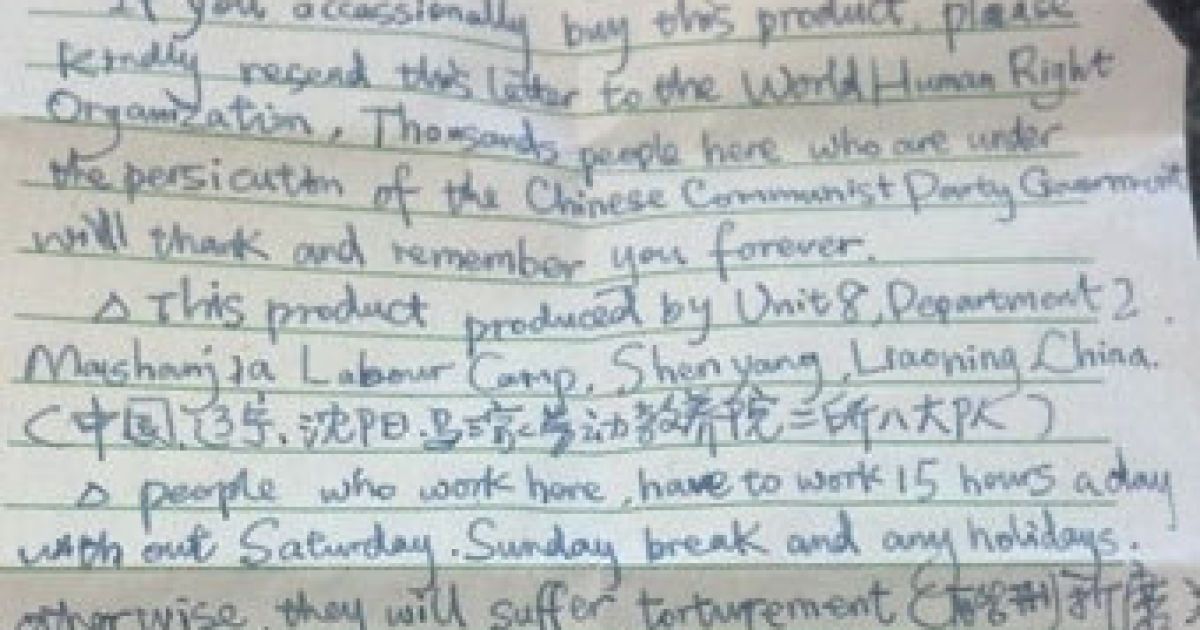 If you occassionally buy this product, please
kindly resend this letter to the World Human Right
Organization, Thousands people here who are under
the persicution of the Chinese Communist Party Government
will thank and remember you forever.
△ This product produced by Unit 8, Department 2
Mashanjia Labour Camp, Shenyang, Liaoning China.
(中国,辽宁,沈阳,马三家劳动教养院二所八大队)
△ people who work here, have to work 15 hours a day
with out Saturday. Sunday break and any holidays.
otherwise, they will suffer torturement (